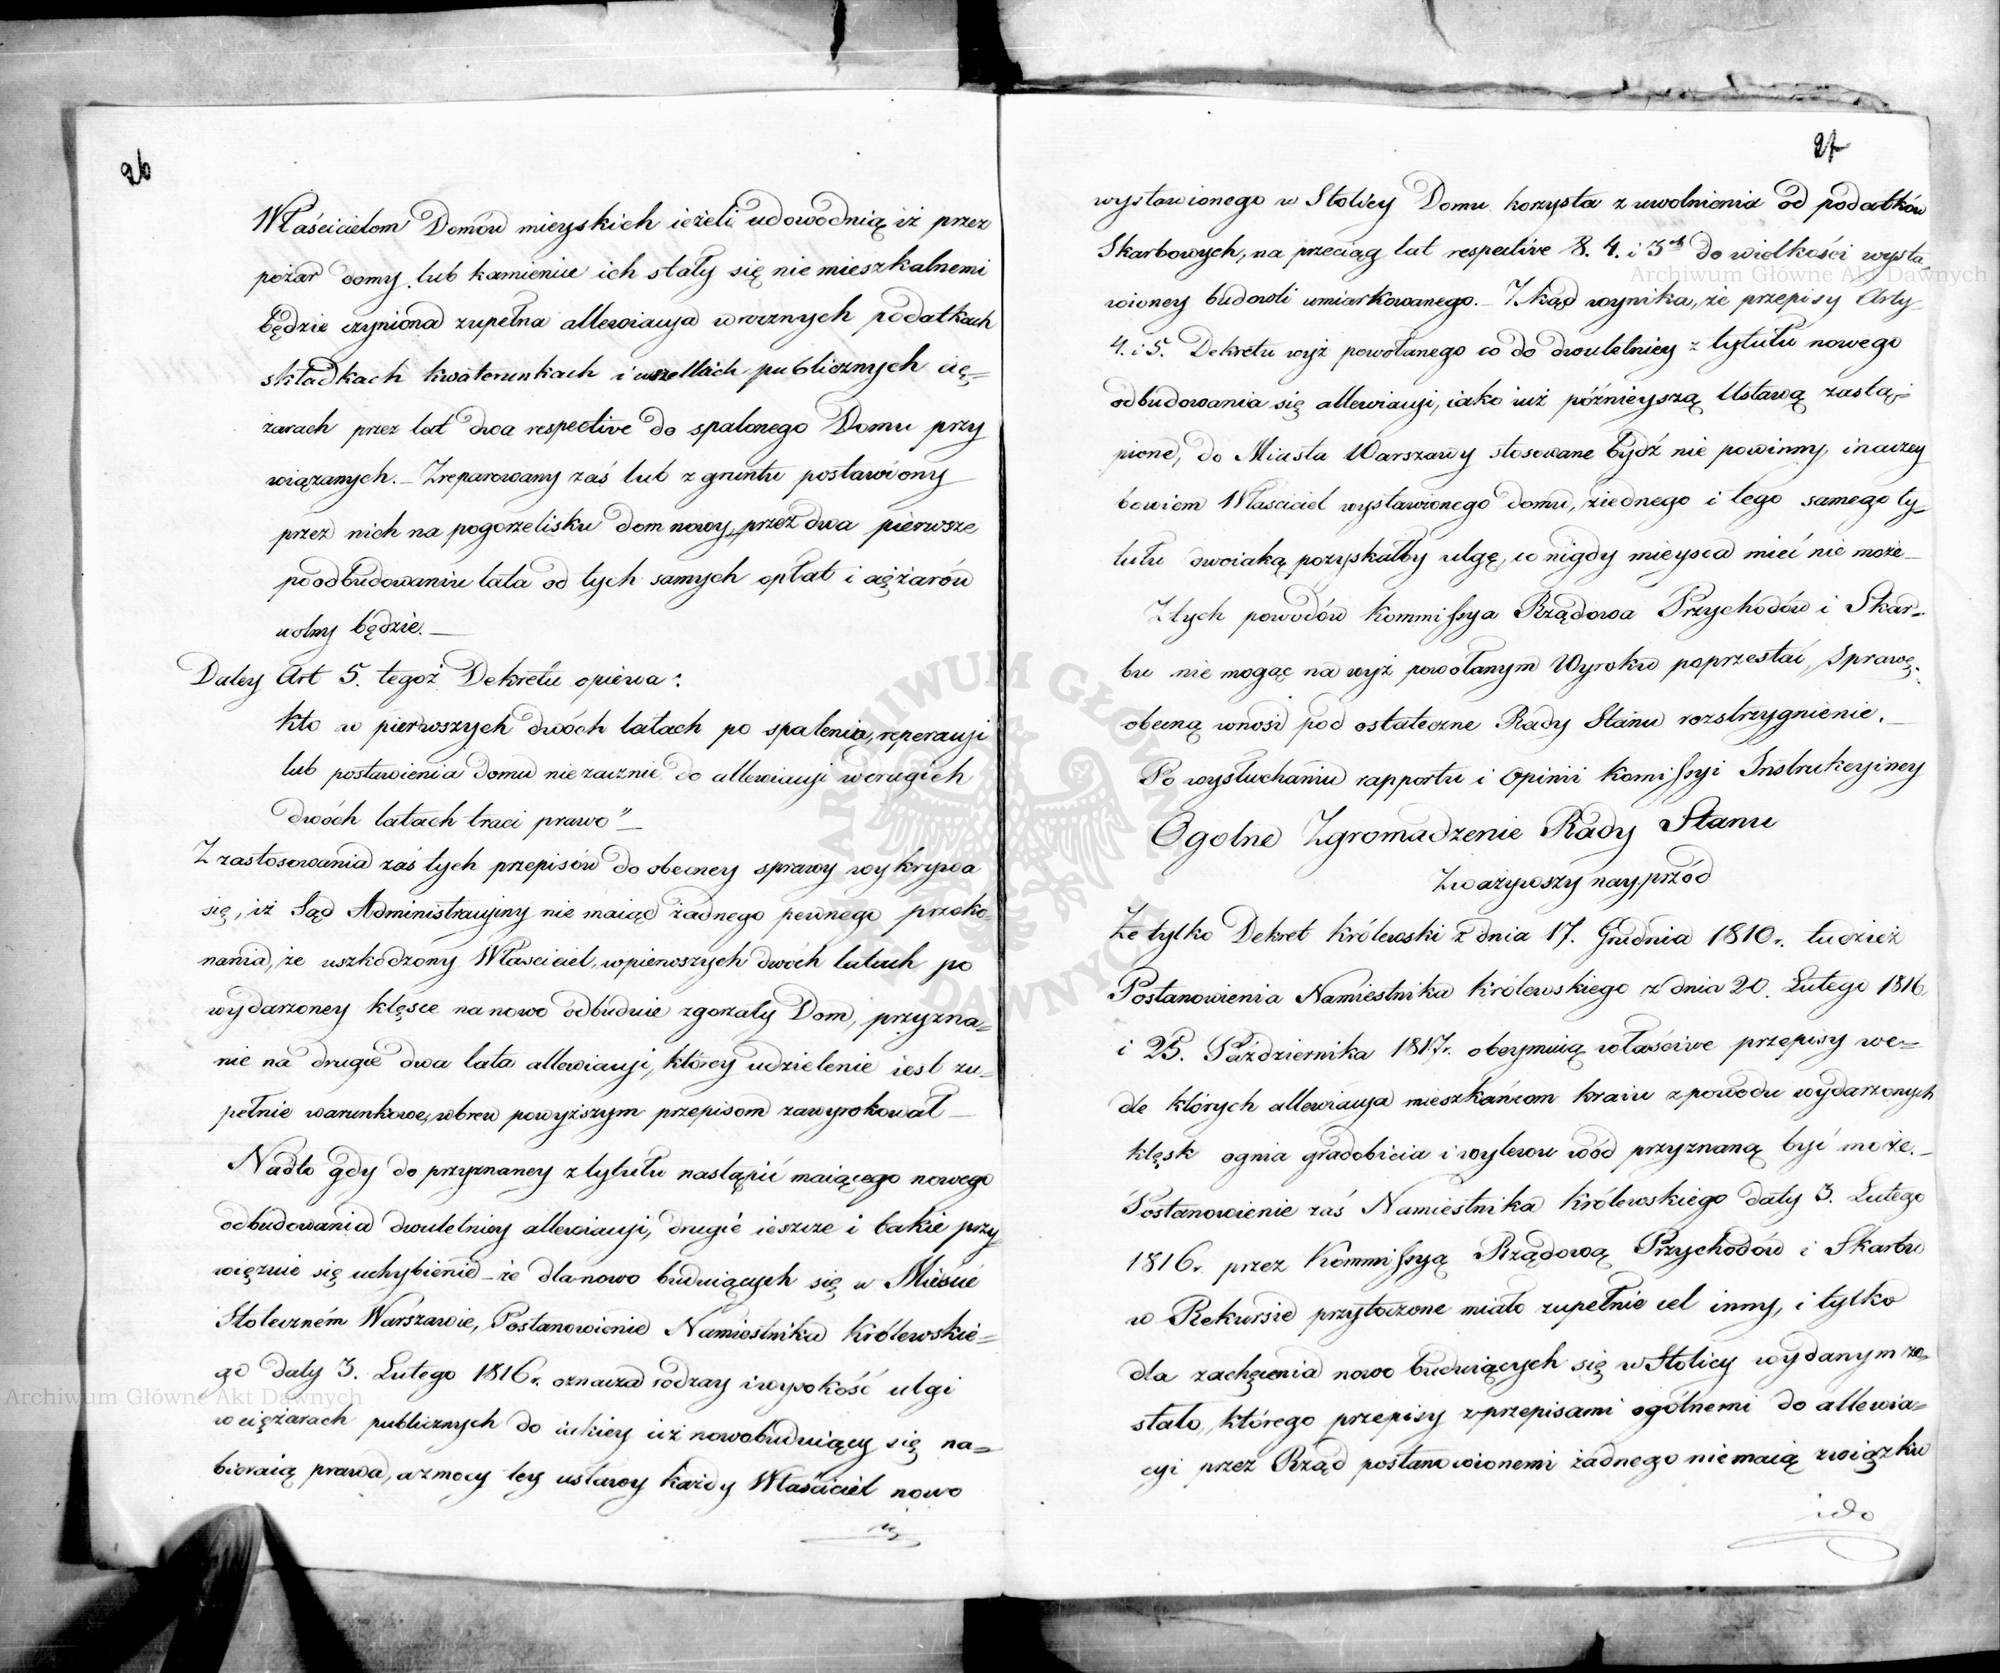 26
Właścicielom Domów mieyskich ieżeli udowodnią iż przez
pożar domy lub kamienice ich stały się niemieszkalnemi
będzie czyniona zupełna allewiacya w rocznych podatkach
składkach kwaterunkach i wszelkich publicznych cię=
żarach przez lat dwa respective do spalonego Domu przy
wiązanych. _ Zreparowany zaś lub z gruntu postawiony
przez nich na pogorzelisku dom nowy, przez dwa pierwsze
po odbudowaniu lata od tych samych opłat i ciężarów
wolny będzie. _
Daley Art 5. tegoż Dekretu opiewa:
kto w pierwszych dwóch latach po spaleniu, reperacyi
lub postawienia domu nie zacznie, do allewiacyi w drugich
dwóch latach traci prawo" _
Z zastosowania zaś tych przepisów do obecney sprawy wykrywa
się, iż Sąd Administracyiny nie maiąc żadnego pewnego przeko=
nania, że uszkodzony Właściciel, w pierwszych dwóch latach po
wydarzoney klęsce na nowo odbuduie zgorzały Dom, przyzna=
nie na drugie dwa lata allewiacyi, którey udzielenie iest zu=
pełnie warunkowe, wbrew powyższym przepisom zawyrokował _
Nadto gdy do przyznaney z tytułu nastąpić maiącego nowego
odbudowania dwuletniey allewiacyi, drugie ieszcze i takie przy
więzuie się uchybienie _ że dla nowo buduiących się w Mieście
Stołeczném Warszawie, Postanowienie Namiestnika Królewskie=
go daty 3. Lutego 1816 r. oznacza rodzay i wysokość ulgi
w ciężarach publicznych do iakiey iuż nowobuduiący się na=
bieraią prawa, a z mocy tey ustawy każdy Właściciel nowo
wy
27
wystawionego w Stolicy Domu korzysta z uwolnienia od podatków
Skarbowych, na przeciąg lat respective 8. 4. i 3ch do wielkości wysta=
wioney budowli umiarkowanego. _ Zkąd wynika, że przepisy Arty
4. i 5. Dekretu wyż powołanego co do dwuletniey z tytułu nowego
odbudowania się allewiacyi, iako iuż późnieyszą Ustawą zastą=
pione, do Miasta Warszawy stosowane bydź nie powinny, inaczey
bowiem Właściciel wystawionego domu, z iednego i tego samego ty=
tułu dwoiaką pozyskałby ulgę, co nigdy mieysca mieć nie może _
Z tych powodów Kommissya Rządowa Przychodów i Skar=
bu nie mogąc na wyż powołanym Wyroku poprzestać, Sprawę
obecną wnosi pod ostateczne Rady Stanu rozstrzygnienie. _
Po wysłuchaniu rapportu i Opinii Komissyi Instrukcyiney
Ogólne Zgromadzenie Rady Stanu
Zważywszy nayprzód
Że tylko Dekret Królewski z dnia 17. Grudnia 1810 r. tudzież
Postanowienia Namiestnika Królewskiego z dnia 20. Lutego 1816
i 25. Października 1817 r. obeymuią właściwe przepisy we=
dle których allewiacya mieszkańcom kraiu z powodu wydarzonych
klęsk ognia gradobicia i wylewu wód przyznaną być może. _
Postanowienie zaś Namiestnika Królewskiego daty 3. Lutego
1816 r. przez Kommissyą Rządową Przychodów i Skarbu
w Rekursie przytoczone miało zupełnie cel inny, i tylko
dla zachęcenia nowo buduiących się w Stolicy wydanym zo=
stało, którego przepisy z przepisami ogólnemi do allewia=
cyi przez Rząd postanowionemi żadnego nie maią związku
i do
Archiwum Główne Akt Dawnych
Archiwum Główne Akt Dawnych
ARCHIWUM GŁÓWNE AKT DAWNYCH